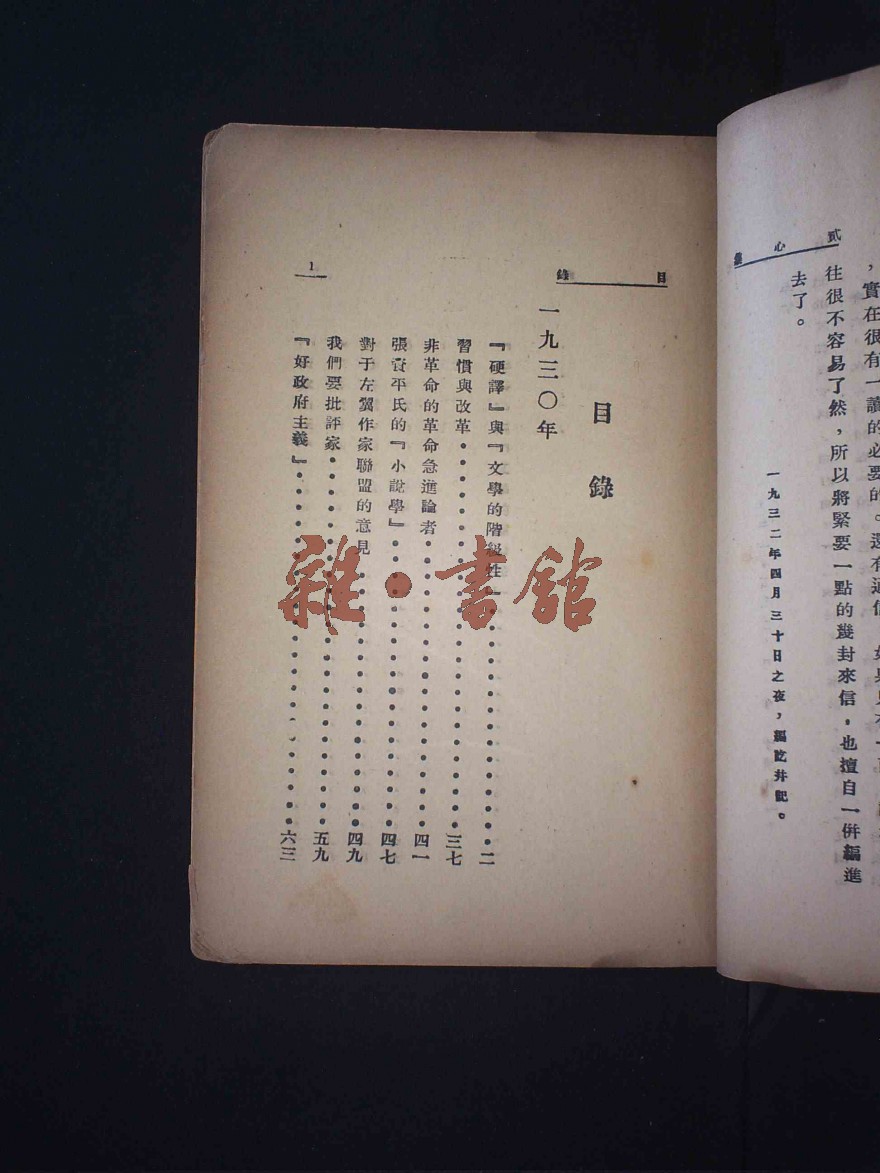 貳心集
，實在很有一讀的必要的。還有通信
往很不容易了然，所以將緊要一點的幾封來信，也擅自一併編進
去了。
一九三二年四月三十日之夜，編訖并記。
目錄
目錄
一九三〇年
『硬譯』與『文學的階級性』二
習慣與改革三七
非革命的革命急進論者四一
張資平氏的『小說學』四七
對于左翼作家聯盟的意見四九
我們要批評家五九
『好政府主義』六三
1
雜·書館